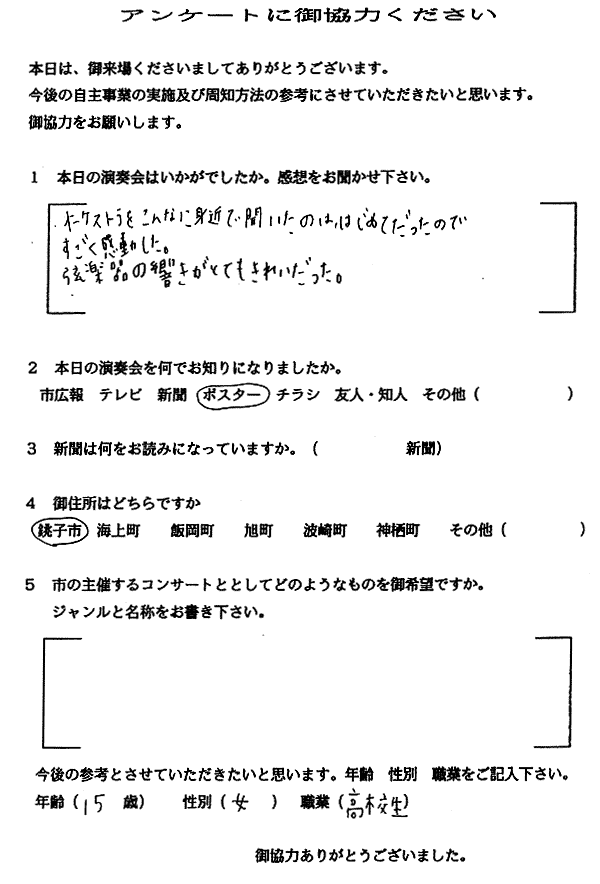 アンケートに御協力ください
本日は、御来場くださいましてありがとうございます。
今後の自主事業の実施及び周知方法の参考にさせていただきたいと思います。
御協力をお願いします。
1 本日の演奏会はいかがでしたか。感想をお聞かせ下さい。
オーケストラをこんなに身近で聞いたのは、はじめてだったので
すごく感動した。
弦楽器の響きがとてもきれいだった。
2 本日の演奏会を何でお知りになりましたか。
市広報 テレビ 新聞 ポスター チラシ 友人・知人 その他( )
3 新聞は何をお読みになっていますか。( 新聞)
4 御住所はどちらですか
銚子市 海上町 飯岡町 旭町 波崎町 神栖町 その他( )
5 市の主催するコンサートととしてどのようなものを御希望ですか。
ジャンルと名称をお書き下さい。
今後の参考とさせていただきたいと思います。年齢 性別 職業をご記入下さい。
年齢(15 歳) 性別(女 ) 職業(高校生)
御協力ありがとうございました。